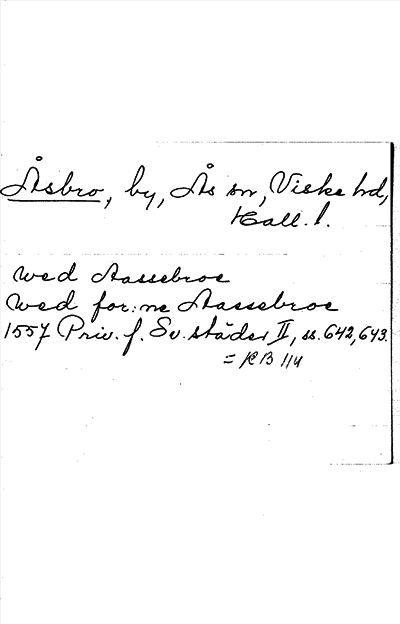 Åsbro, by, Ås sn, Viske hd,
Hall. l.
wed Aassebroe
wed for:ne Aassebroe
1557 Priv. f. Sv. städer II, ss. 642, 643.
= KB 114